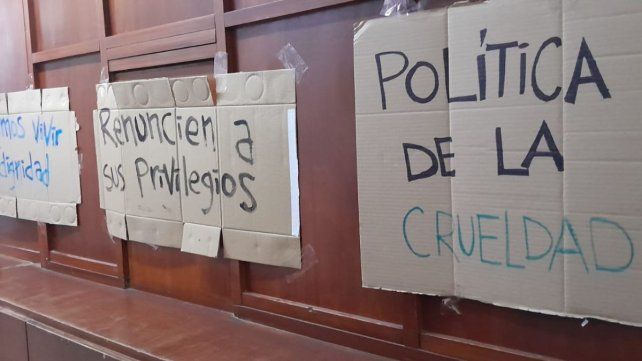 mos vivir
dignidad
Renuncien a
sus Privilegios
POLÍTICA
DE LA
CRUELDAD